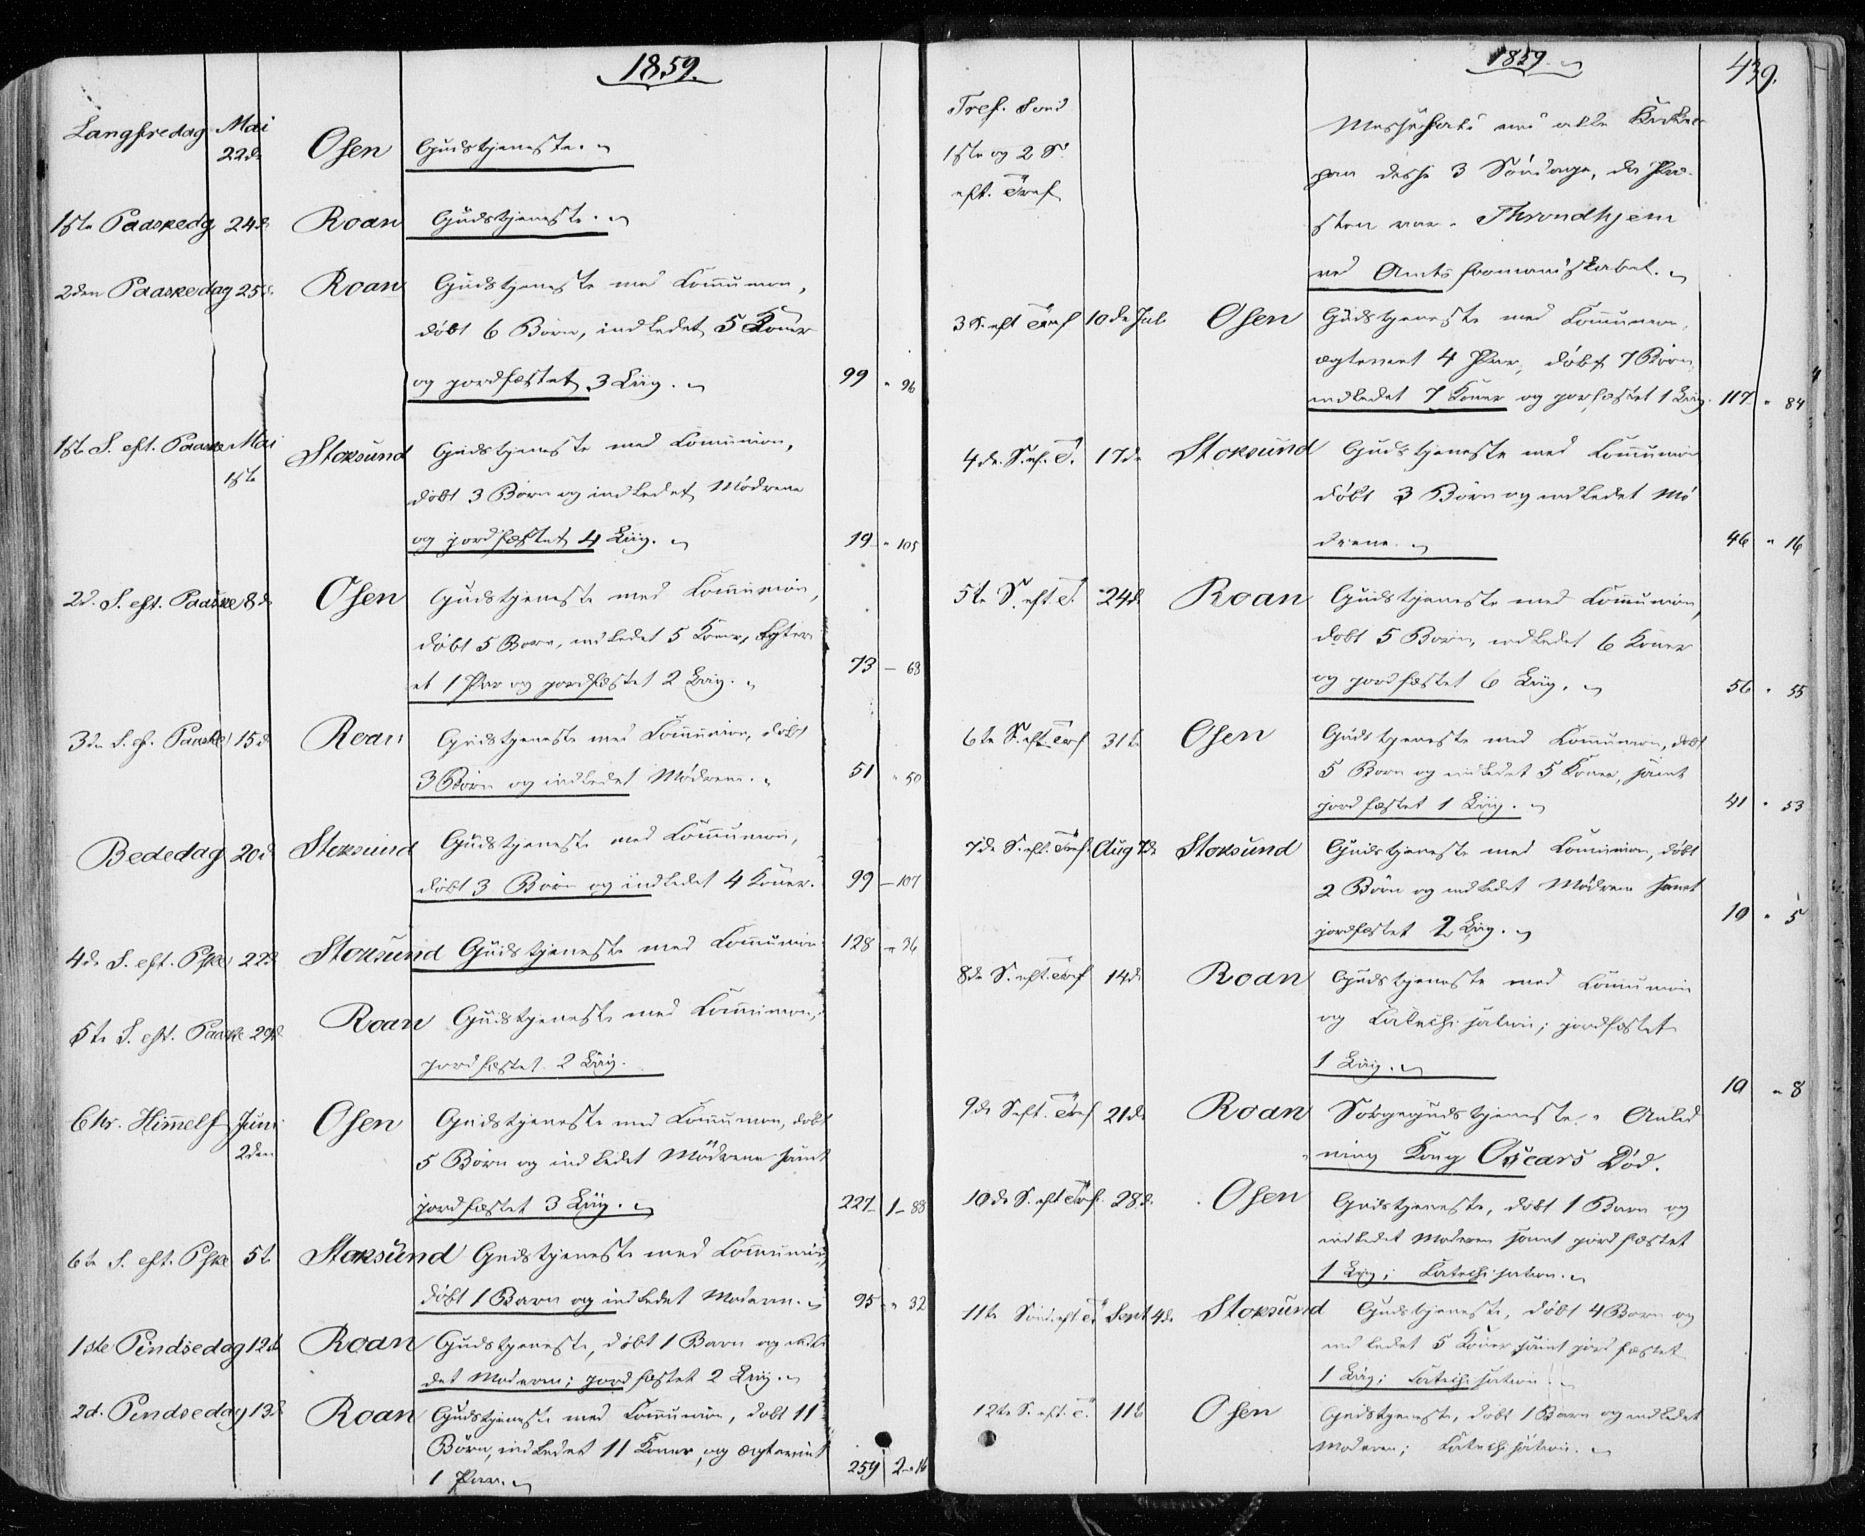 1859.
Langfredag Mai 22de Osen Gudstjeneste.
1ste Paaskedg 24de Roan Gudstjeneste.
2den Paaskedag 25de Roan Gudstjeneste med Communion,
døbt 6 Børn, indledet 5 Koner
og jordfæstet 3 Liig. 99 " 96
1ste S. eft. Paaske Mai 1ste Stoksund Gudstjeneste med Communion,
døbt 3 Børn og indledet Mødrene
og jordfæstet 4 Liig. 19 " 105
2d. S. eft. Paaske 8de Osen Gudstjeneste med Communion,
døbt 5 Børn, indledet 5 Koner, Egtevi
et 1 Par og jordfæstet 2 Liig. 73 – 63
3de S. ef. Paaske 15de Roan Gudstjeneste med Communion, døbt
3 Børn og indledet Mødrene. 51 " 50
Bededag 20de Stoksund Gudstjeneste med Communion,
døbt 3 Børn og indledet 4 Koner. 99 – 107
4de S. eft. Pske 22de Stoksund Gudstjeneste med Communion 128 " 36
5te S. eft. Paaske 29de Roan Gudstjeneste med Communion,
jordfæstet 2 Liig.
Chr. Himmelf Juni 2den Osen Gudstjeneste med Communion, døbt
5 Børn og indledet Mødrene samt
jordfæstet 3 Liig. 227 – 1 – 88
6te S. eft. Pske 5te Stoksund Gudstjeneste med Communion,
døbt 1 Barn og indledet Moderen. 95 " 32
1ste Pindsedag 12de Roan Gudstjeneste, døbt 1 Barn og indle
det Moderen; jordfæstet 2 Liig.
2d. Pindsedag 13de Roan Gudstjeneste med Communion, døbt 11
Børn, indledet 11 Koner, og ægteviet
1 Par. 259 2 " 16
1859.
439.
Tref. Sønd
1ste og 2 S.
eft. Tref
Messefald i alle Kirker
paa disse 3 Søndage, da Præ-
sten var i Throndhjem
ved Amtsformandskabet.
3 S. eft Tref 10de Jul Osen Gudstjeneste med Communion,
ægteviet 4 Par, døbt 7 Børn,
indledet 7 Koner og jorfæstet 1 Liig. 117 " 84
4de S. ef. T. 17de Stoksund Gudstjeneste med Communion
døbt 3 Børn og indledet Mø
drene. 46 " 16
5te S. eft T. 24de Roan Gudstjeneste med Communion,
døbt 5 Børn, indledet 6 Koner
og jordfæstet 6 Liig. 56 " 55
6te S. eft Tref 31te Osen Gudstjeneste med Communion, døbt
5 Børn og indledet 5 Koner, samt
jordfæstet 1 Liig. 41 " 53
7de S. eft. Tref. Aug 7de Stoksund Gudstjeneste med Communion, døbt
2 Børn og indledet Mødrene samt
jordfæstet 2 Liig. 10 " 5
8de S. eft. Tref 14de Roan Gudstjeneste med Communion
og Catechisation; jordfæstet
1 Liig. 10 " 8
9de S eft. Tref 21de Roan Sørgegudstjeneste i Anled
ning Kong Oscars Død.
10de S. eft Tref. 28de Osen Gudstjeneste, døbt 1 Barn og
indledet Moderen samt jordfæstet
1 Liig; Catechisation.
11te Sønd. eft T Sept 4de Stoksund Gudstjeneste, døbt 4 Børn og
indledet 5 Koner samt jordfæstet
1 Liig; Catechisation.
12te S. eft. T. 11te Osen Gudstjeneste, døbt 1 Barn og indledet
Moderen; Catechisation.